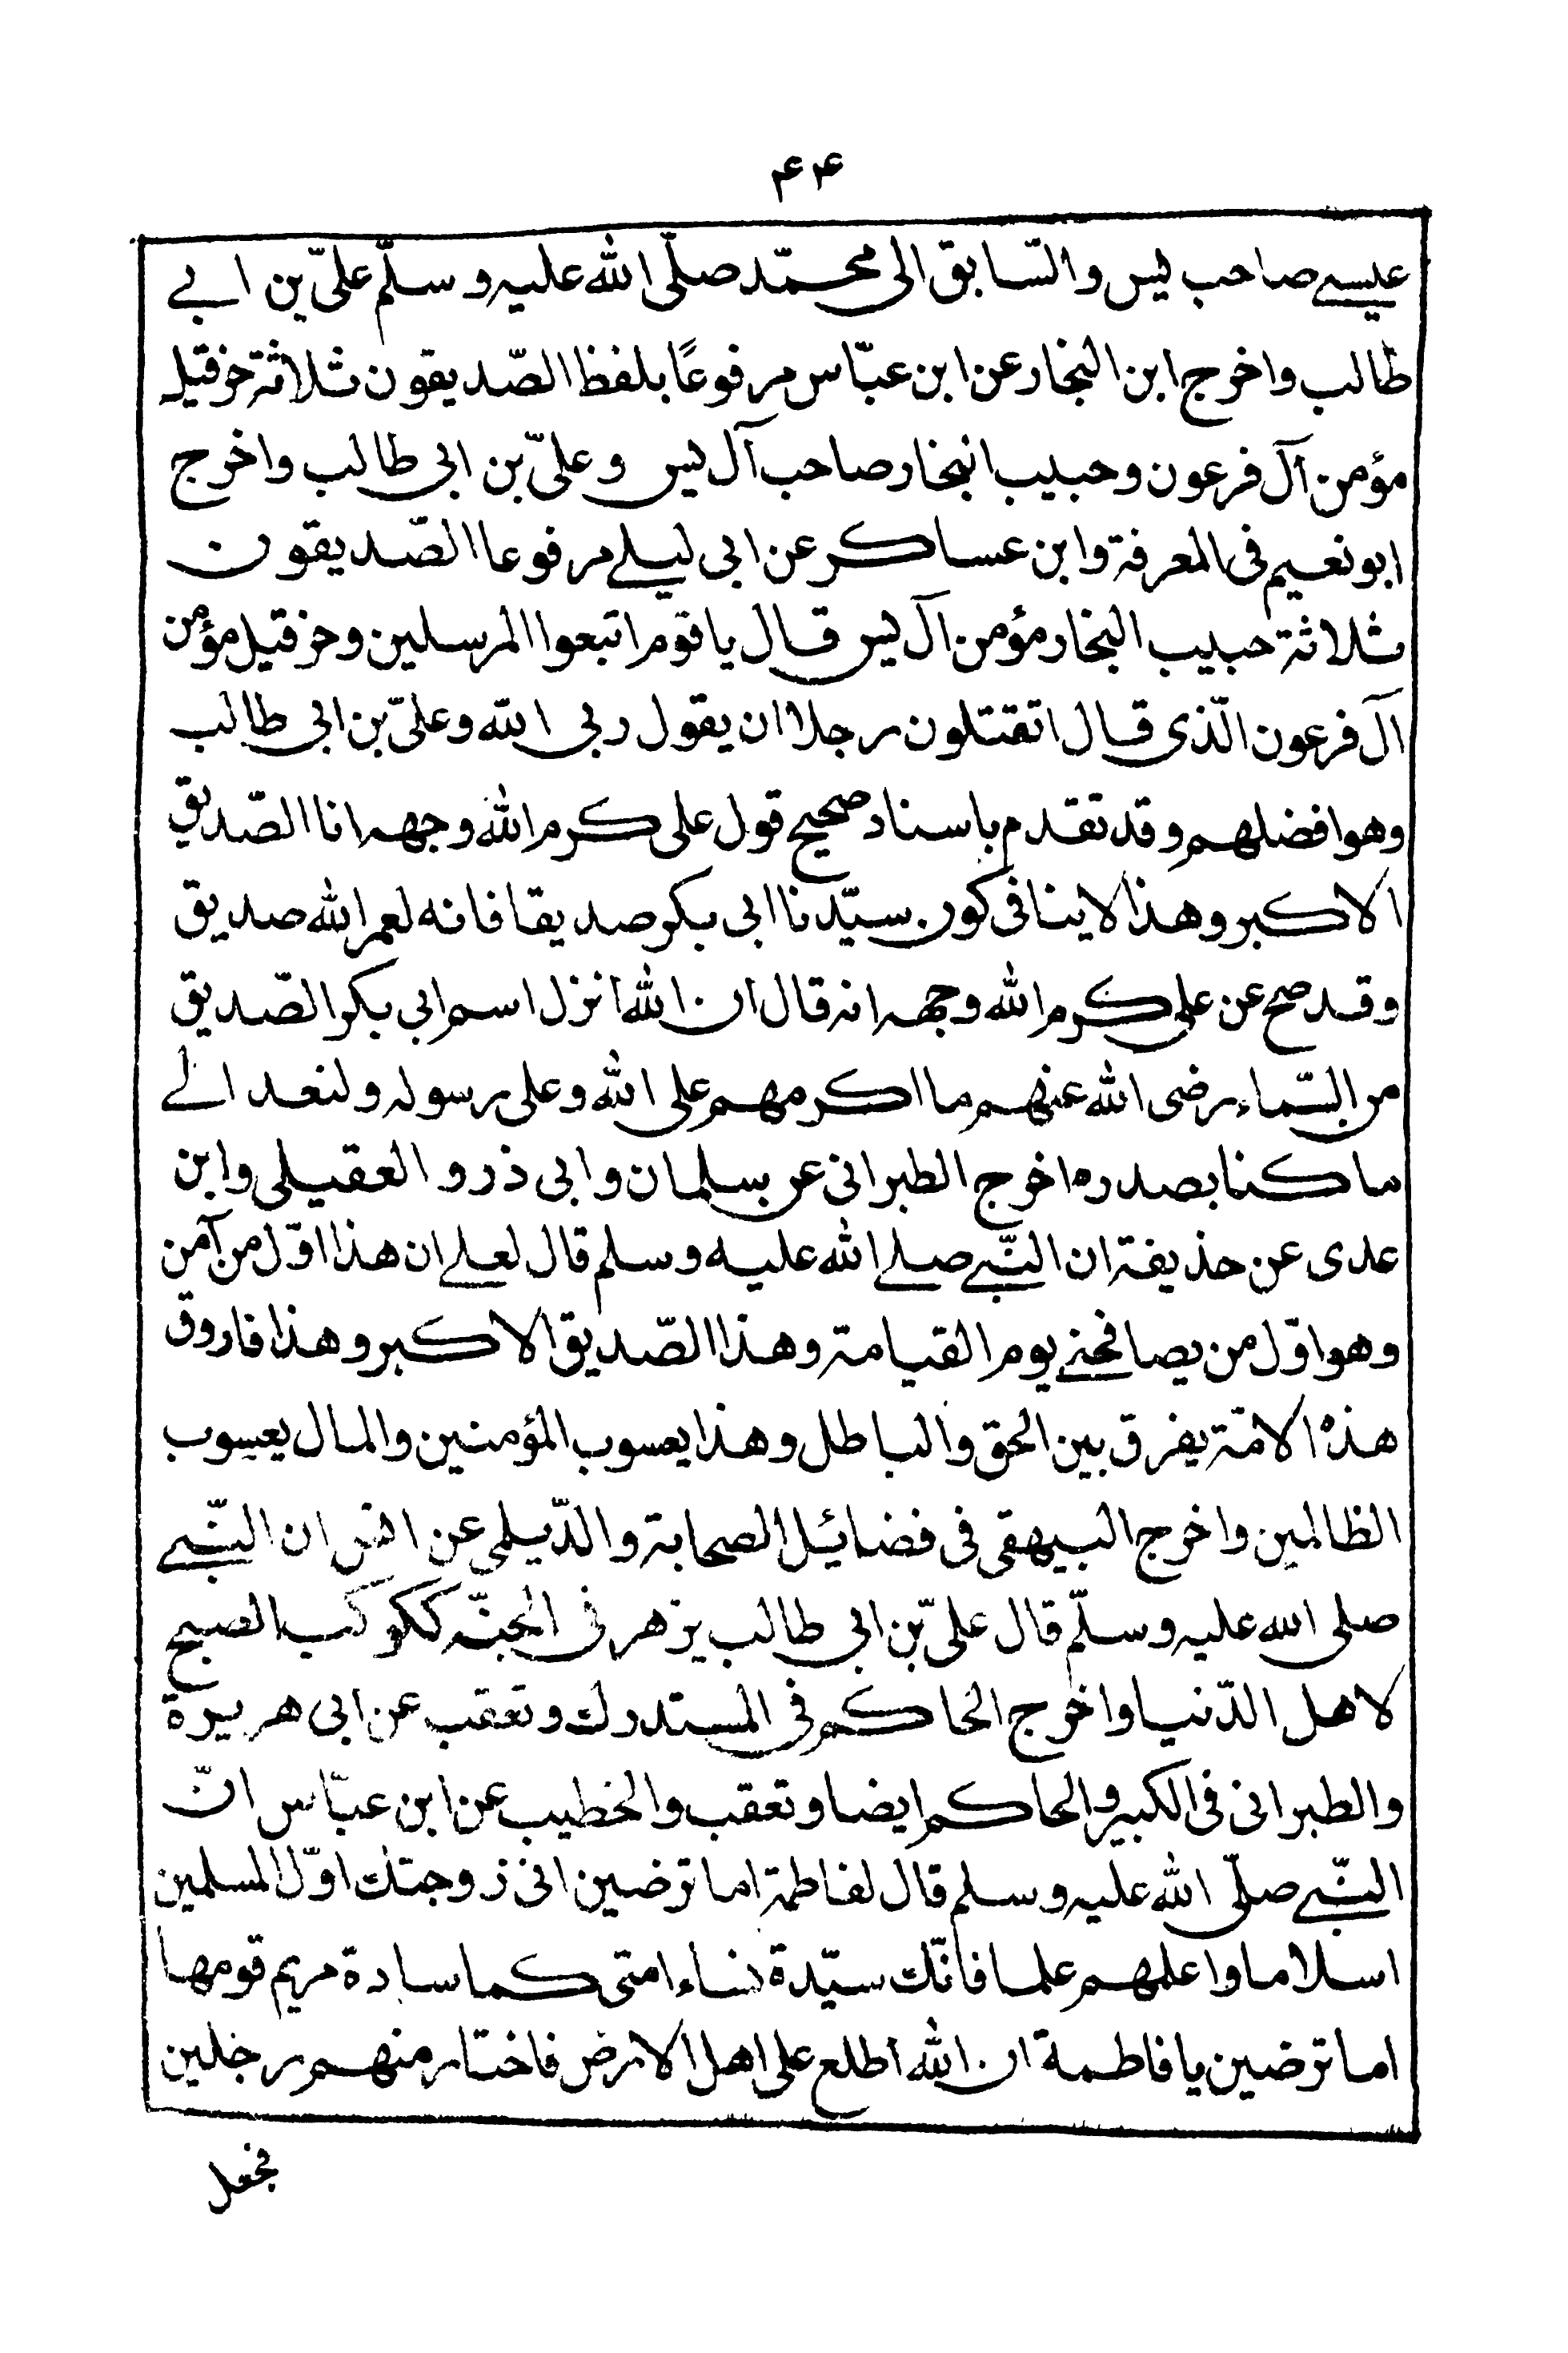 ۴۴
عيسے صاحب ليس والسّابق الى محمّد صلّى الله عليه و سلّم علىّ بن ابے
طالب واخرج ابن النجار عن ابن عبّاس مرفوعًا بلفظ الصّديقون ثلاثة خزقيل
مؤمن آل فرعون وحبيب النجار صاحب آل ليس وعلىّ بن ابى طالب واخرج
ابو نعيم فى المعرفة وابن عساكر عن ابى ليلے مرفوعا الصّديقون
ثلاثة حبيب النجار مؤمن آل ليس قال ياقوم اتبعوا المرسلين وحزقيل مؤمن
آل فرعون الّذى قال اتقتلون رجلا ان يقول ربى الله وعلىّ بن ابى طالب
وهو افضلهم وقد تقدم باسناد صحيح قول على كرم الله وجهه انا الصّديق
الاكبر وهذا لاينافى كون سيّدنا ابى بكر صديقا فانه لعمر الله صديق
وقد صح عن على كرم الله وجهه انه قال ان الله انزل اسم ابى بكر الصّديق
من السّماء رضى الله عنهم ما اكرمهم على الله وعلى رسوله ولنعد الے
ما كنا بصدره اخرج الطبرانى عن سلمان وابى ذر و العقيلى وابن
عدى عن حذيفة ان النّبے صلے الله عليه وسلم قال لعلے ان هذا اوّل من آمن
وهو اوّل من يصافحنے يوم القيامة وهذا الصّديق الاكبر وهذا فاروق
هذه الامّة يفرق بين الحق والباطل وهذا يعسوب المؤمنين والمال يعسوب
الظالمين واخرج البيهقى فى فضائيل الصحابة والدّيلمى عن انس ان النّبے
صلى الله عليه وسلّم قال علىّ بن ابى طالب يزهر فى الجنّة ككوكب الصبح
لاهل الدّنيا واخرج الحاكم فى المستدرك وتعقب عن ابى هريرة
والطبرانى فى الكبير والحاكم ايضا وتعقب والخطيب عن ابن عبّاس انّ
النّبے صلّى الله عليه وسلم قال لفاطمة اما ترضين انى زوجتك اوّل المسلمين
اسلاما واعلمهم علما فانّك سيّدة نساء امتى كما سادة مريم قومها
اما ترضين يا فاطمة ان الله اطلع على اهل الارض فاختار منهم رجلين
فجعل